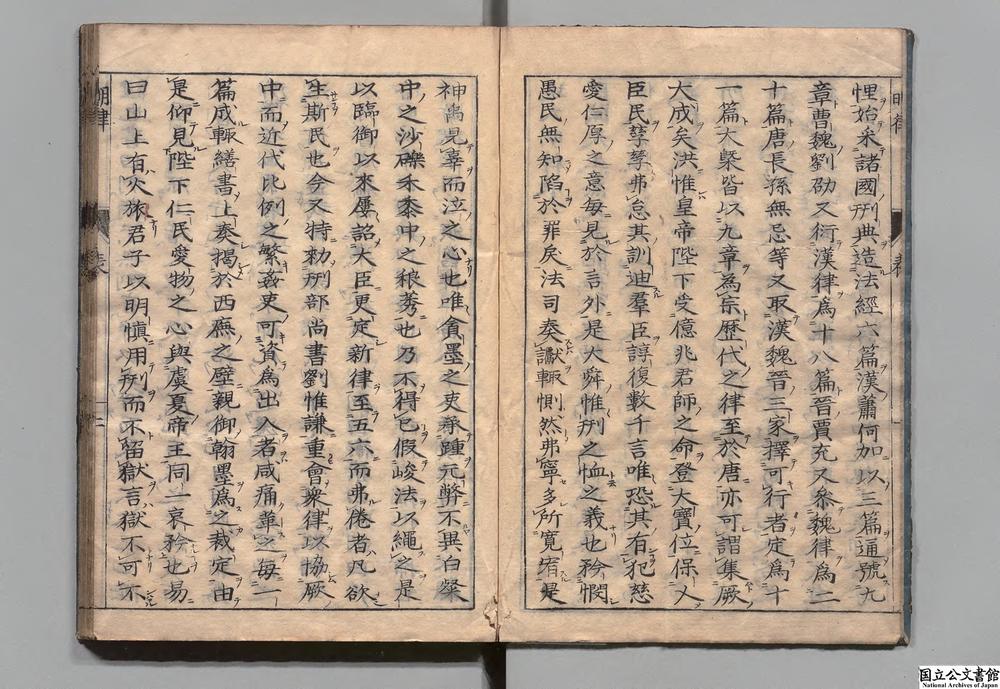 悝始采諸國刑典造法經六篇漢蕭何加以三篇通號九
章曹魏劉劭又衍漢律爲十八篇晉賈充又叅魏律爲二
十篇唐長孫無忌等又取漢魏晉三家擇可行者定爲十
一篇大槩皆以九章爲宗歷代之律至於唐亦可謂集厥
大成矣洪惟皇帝陛下受億兆君師之命登大寶位保乂
臣民孳孳弗怠其訓迪羣臣諄復數千言唯恐其有犯慈
愛仁厚之意每見於言外是大舜惟刑之恤之義也矜憫
愚民無知陷於罪戾法司奏讞輒惻然弗寧多所寬宥是
神禹見辜而泣之心也唯貪墨之吏承踵元弊不異白粲
中之沙礫禾黍中之稂莠也乃不得已假峻法以繩之是
以臨御以來屢詔大臣更定新律至五六而弗倦者凡欲
生斯民也今又特勑刑部尚書劉惟謙重會衆律以協厥
中而近代比例之繁姦吏可資爲出入者咸痛革之每一
篇成輒繕書上奏揭於西廡之壁親御翰墨爲之裁定由
是仰見陛下仁民愛物之心與虞夏帝王同一哀矜也易
曰山上有火旅君子以明愼用刑而不留獄言獄不可不
明律
表
二
国立公文書館
National Archives of Japan